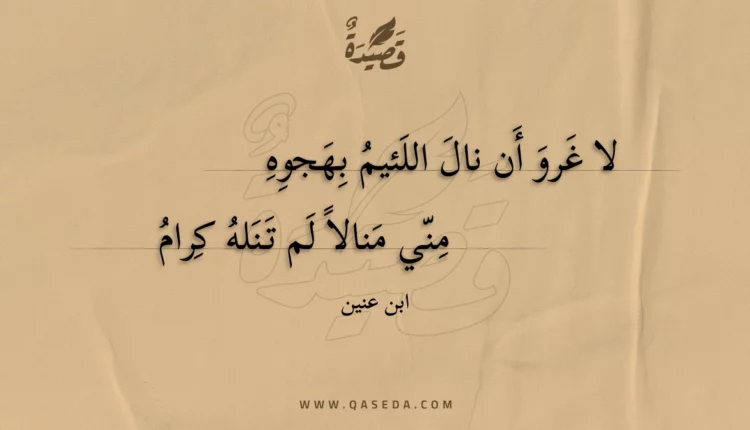 قَصِيدَةٌ
لا غَروَ أَن نالَ اللَئيمُ بِهَجوِهِ
مِنّي مَنالاً لَم تَنَلهُ كِرامُ
ابن عنين
WWW.QASEDA.COM